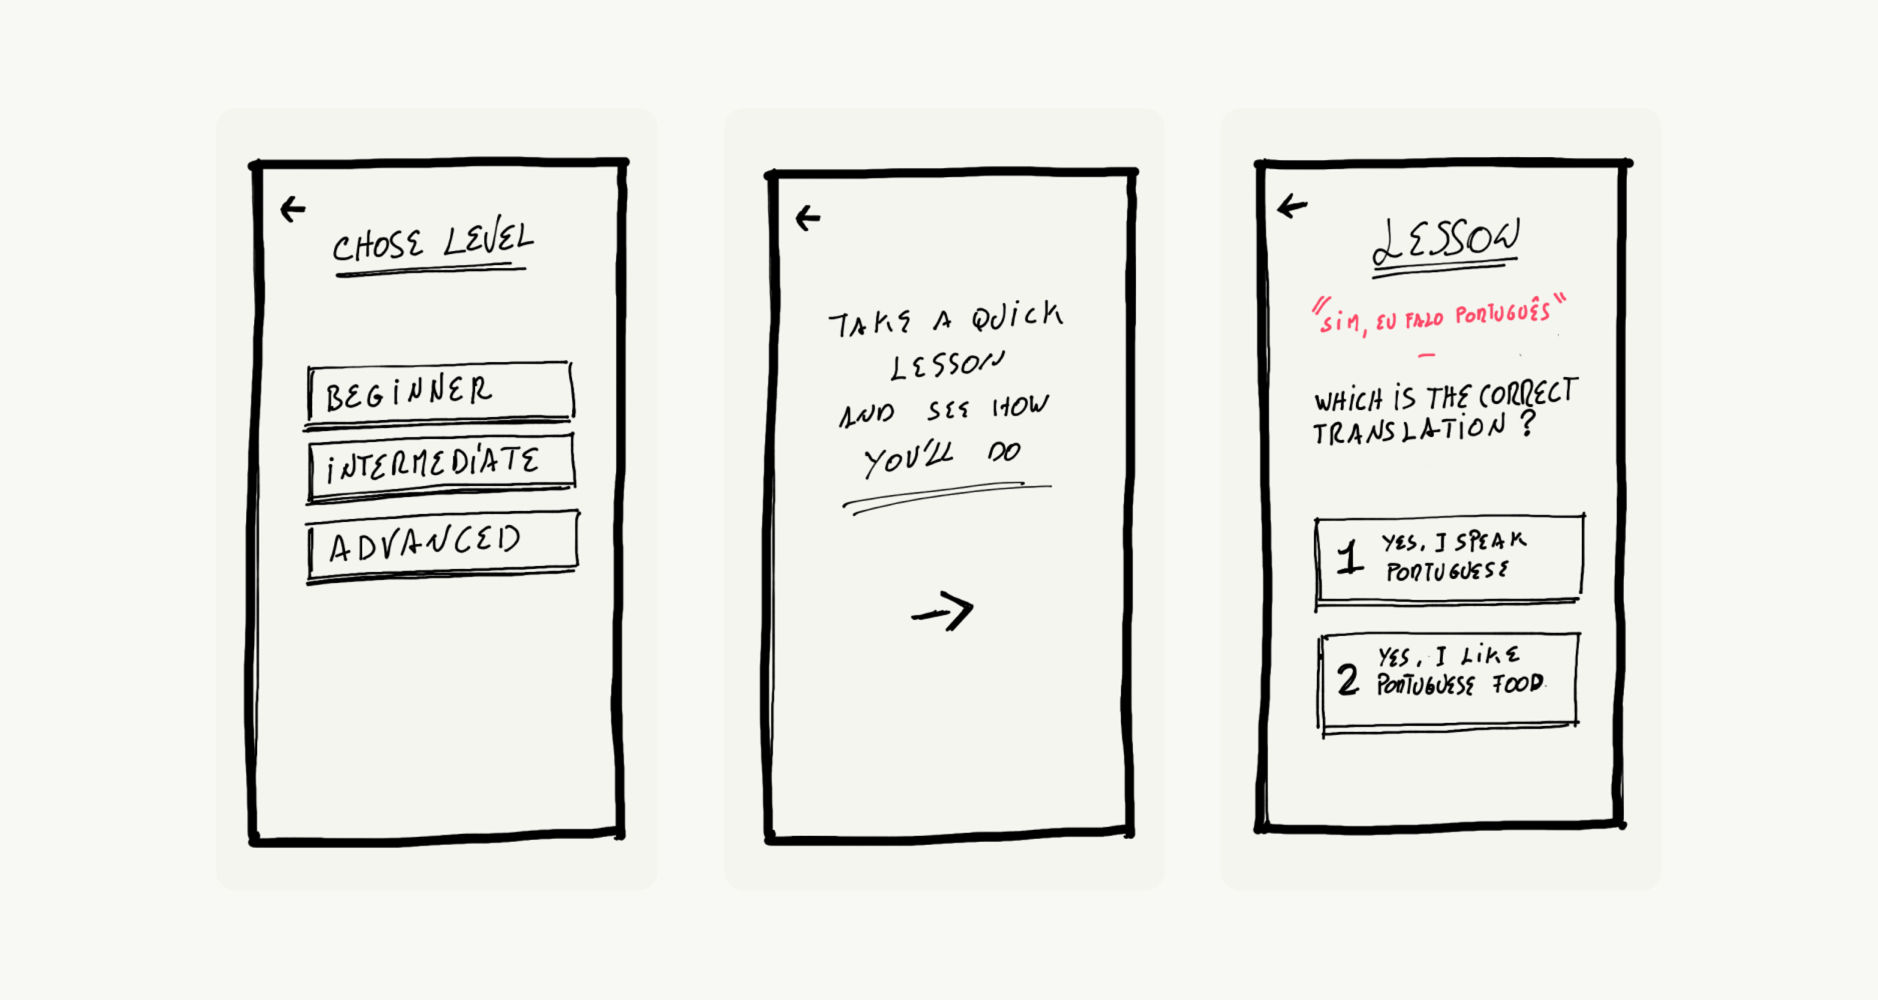 ←
CHOSE LEVEL
BEGINNER
INTERMEDIATE
ADVANCED
←
TAKE A QUICK
LESSON
AND SEE HOW
YOU'LL DO
→
←
LESSON
"SIM, EU FALO PORTUGUÊS"
–
WHICH IS THE CORRECT
TRANSLATION?
1 YES, I SPEAK
PORTUGUESE
2 YES, I LIKE
PORTUGUESE FOOD.